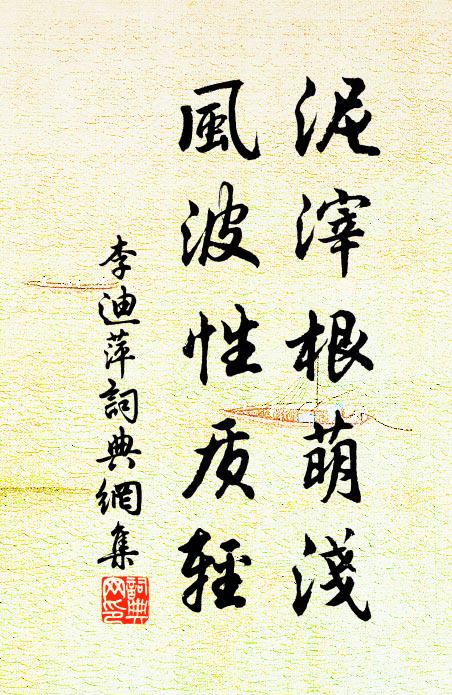 泥滓根萌淺
風波性质輕
李迪萍詞典網集
詞典
网印